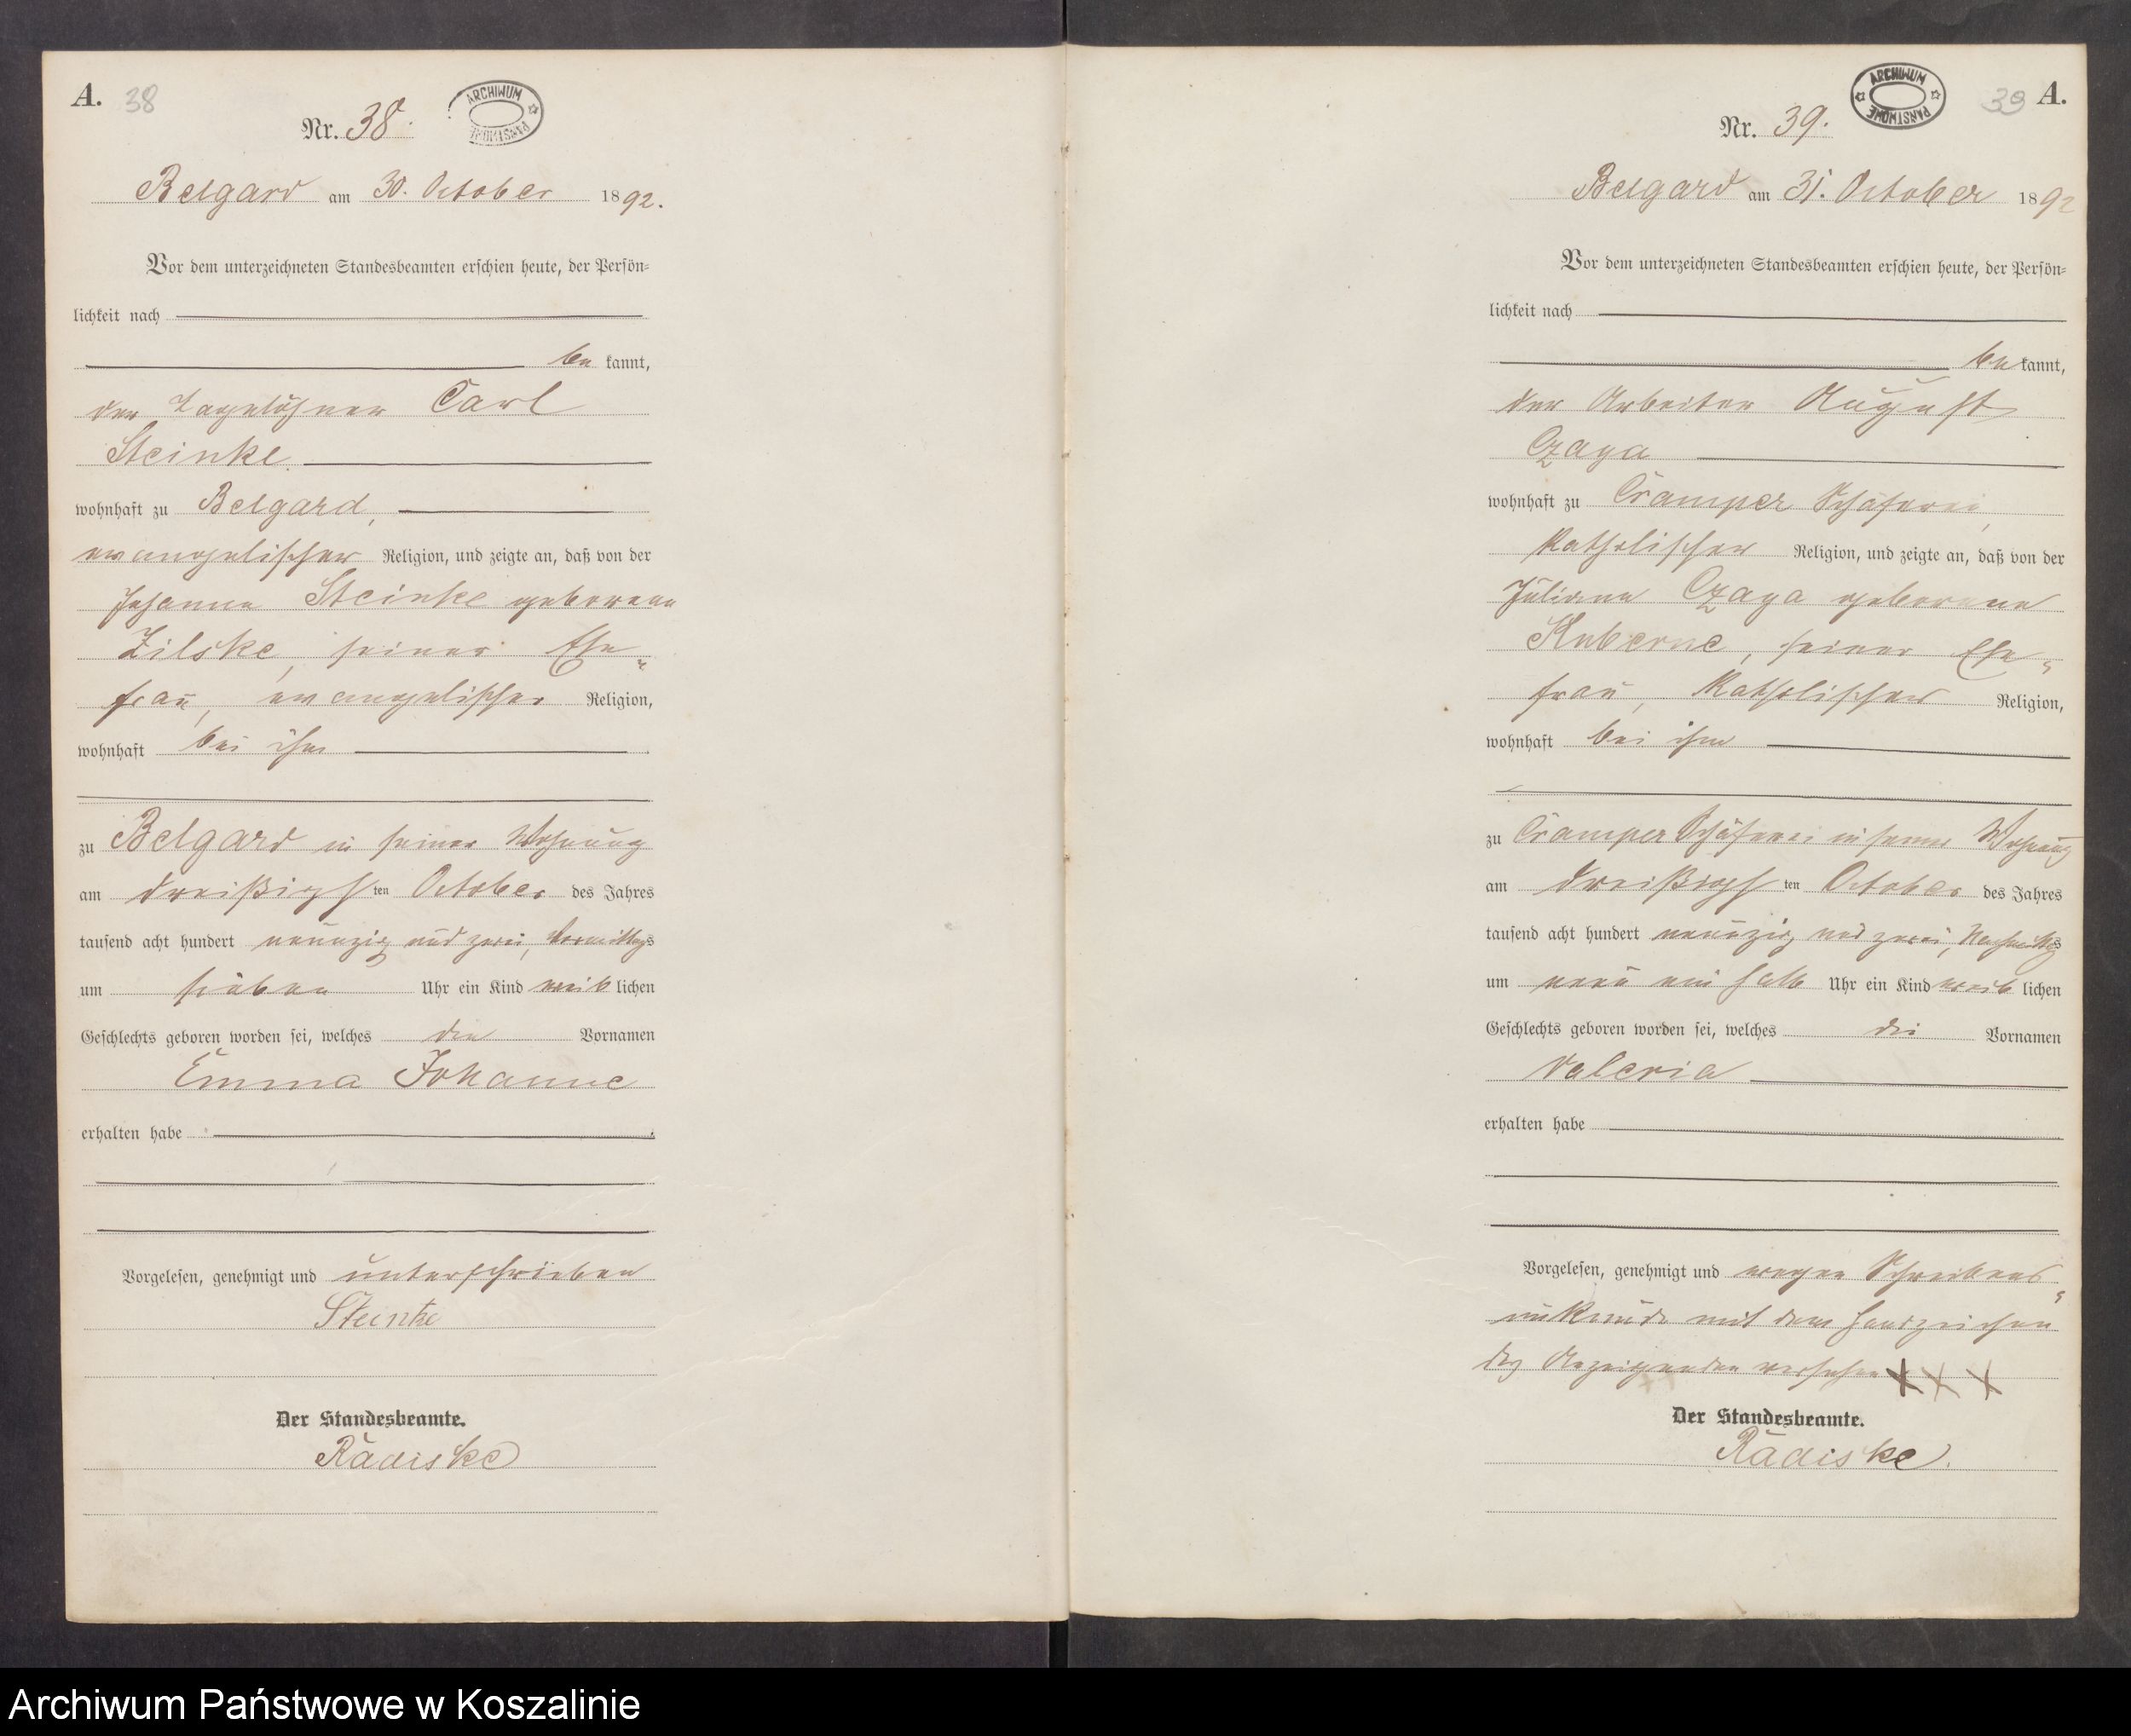 A. 38
Nr. 38.
ARCHIWUM PAŃSTWOWE
Belgard am 30. October 1892.
Vor dem unterzeichneten Standesbeamten erschien heute, der Persön-
lichkeit nach
be kannt,
der Tagelöhner Carl
Steinke
wohnhaft zu Belgard,
evangelischer Religion, und zeigte an, daß von der
Johanne Steinke geborene
Zilske, seiner Ehe-
frau, evangelischer Religion,
wohnhaft bei ihm
zu Belgard in seiner Wohnung
am dreißigsten October des Jahres
tausend acht hundert neunzig und zwei, Vormittags
um sieben Uhr ein Kind weiblichen
Geschlechts geboren worden sei, welches die Vornamen
Emma Johanne
erhalten habe
Vorgelesen, genehmigt und unterschrieben
Steinke
Der Standesbeamte.
Radiske
39 A.
Nr. 39.
ARCHIWUM PAŃSTWOWE
Belgard am 31. October 1892
Vor dem unterzeichneten Standesbeamten erschien heute, der Persön-
lichkeit nach
be kannt,
der Arbeiter August
Czaga
wohnhaft zu Cramper Schäferei,
katholischer Religion, und zeigte an, daß von der
Juliane Czaga geborene
Kuberne, seiner Ehe-
frau, katholischer Religion,
wohnhaft bei ihm
zu Cramper Schäferei in seiner Wohnung
am dreißigsten October des Jahres
tausend acht hundert neunzig und zwei, Nachmittags
um neun ein halb Uhr ein Kind weiblichen
Geschlechts geboren worden sei, welches die Vornamen
Valeria
erhalten habe
Vorgelesen, genehmigt und wegen Schreibens-
unkunde mit dem Handzeichen
des Anzeigenden versehen XXX
Der Standesbeamte.
Radiske.
Archiwum Państwowe w Koszalinie